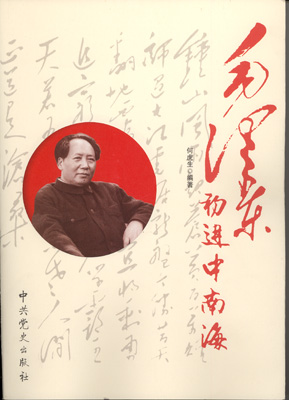 毛泽东
初进中南海
何虎生◎编著
鍾山風雨起蒼黃百万雄
師過大江虎踞龍盤今勝昔天
翻地覆慨而慷宜將剩勇
追窮寇不可沽名學霸王
天若有情天亦老人間
正道是滄桑
中共党史出版社